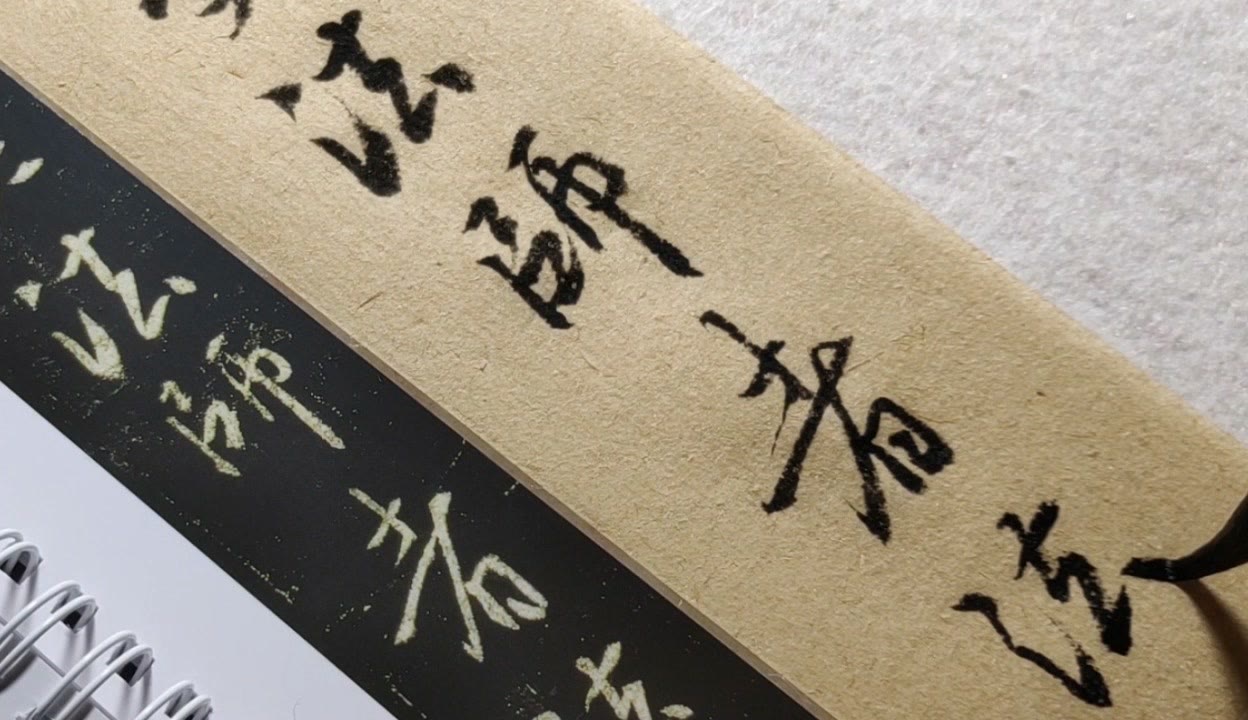 法師者法
法師者法